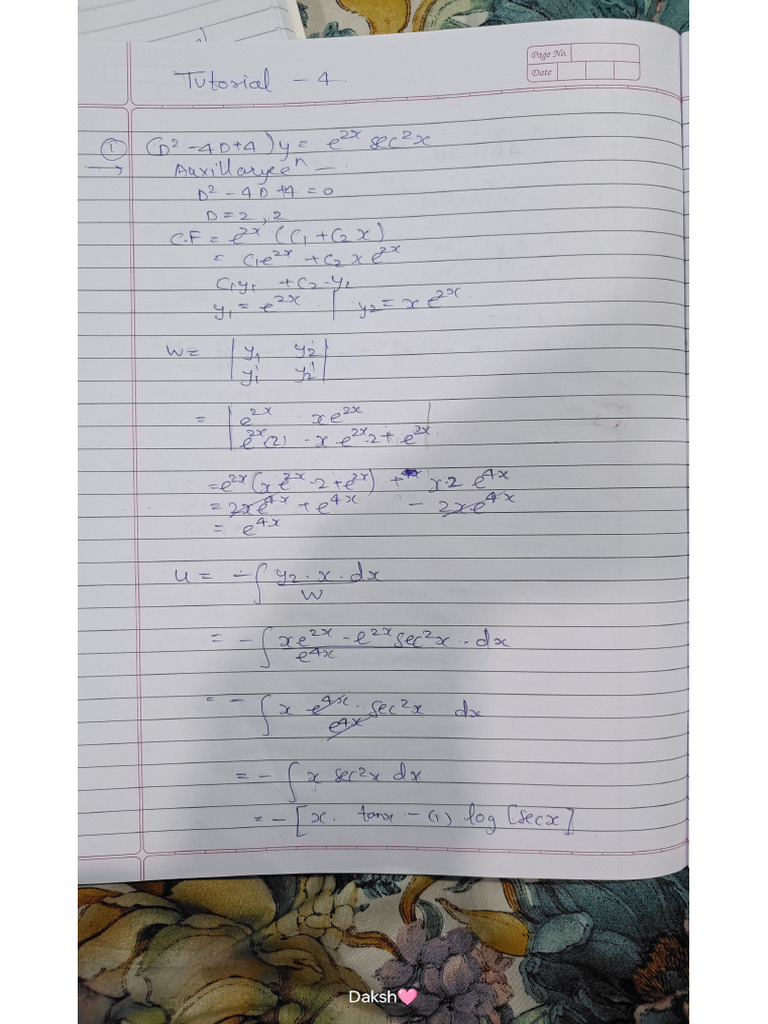 Page No.
Date
Tutorial - 4
① (D² - 4D+4)y = e^2x sec²x
→ Auxillary eqⁿ -
D² - 4D +4 = 0
D = 2, 2
C.F = e^2x (C₁ + C₂ x)
= C₁e^2x + C₂ x e^2x
C₁y₁ + C₂ . y₂
y₁ = e^2x | y₂ = x e^2x.
W = | y₁ y₂ |
| y₁' y₂' |
= | e^2x xe^2x |
| e^2x(2) - x.e^2x.2 + e^2x |
= e^2x (x e^2x . 2 + e^2x) + x.2 e^4x
= 2xe^4x + e^4x - 2xe^4x
= e^4x
u = - ∫ y₂ . x . dx
W
= - ∫ xe^2x - e^2x sec²x . dx
e^4x
= - ∫ x e^4x . sec²x dx
e^4x
= - ∫ x sec²x dx
= - [x. tanx - (1) log [secx]
Daksh🩷